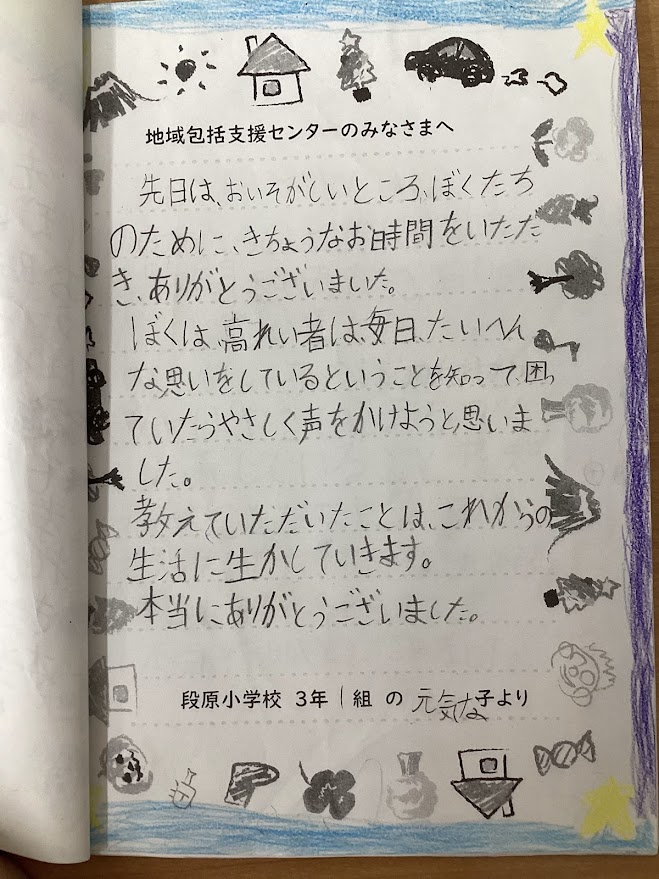 地域包括支援センターのみなさまへ
先日は、おいそがしいところ、ぼくたち
のために、きちょうなお時間をいただ
き、ありがとうございました。
ぼくは、高れい者は、毎日、たいへん
な思いをしているということを知って、困っ
ていたらやさしく声をかけようと思いま
した。
教えていただいたことは、これからの
生活に生かしていきます。
本当にありがとうございました。
段原小学校 3年 1組 の 元気な子より